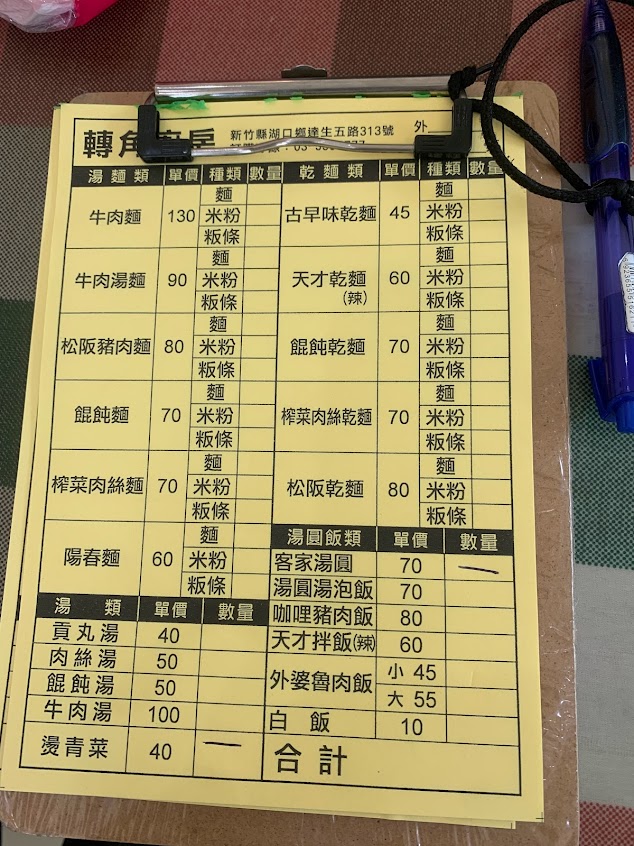 轉角 房 新竹縣湖口鄉達生五路313號 外
湯麵類 單價 種類 數量
牛肉麵 130 麵 米粉 粄條
牛肉湯麵 90 麵 米粉 粄條
松阪豬肉麵 80 麵 米粉 粄條
餛飩麵 70 麵 米粉 粄條
榨菜肉絲麵 70 麵 米粉 粄條
陽春麵 60 麵 米粉 粄條
湯 類 單價 數量
貢丸湯 40
肉絲湯 50
餛飩湯 50
牛肉湯 100
燙青菜 40 一
乾麵類 單價 種類 數量
古早味乾麵 45 麵 米粉 粄條
天才乾麵(辣) 60 麵 米粉 粄條
餛飩乾麵 70 麵 米粉 粄條
榨菜肉絲乾麵 70 麵 米粉 粄條
松阪乾麵 80 麵 米粉 粄條
湯圓飯類 單價 數量
客家湯圓 70 一
湯圓湯泡飯 70
咖哩豬肉飯 80
天才拌飯(辣) 60
外婆魯肉飯 小 45
大 55
白飯 10
合計